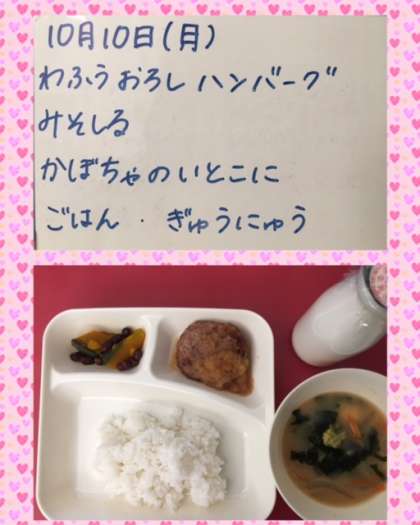 10月10日(月)
わふうおろしハンバーグ
みそしる
かぼちゃのいとこに
ごはん・ぎゅうにゅう